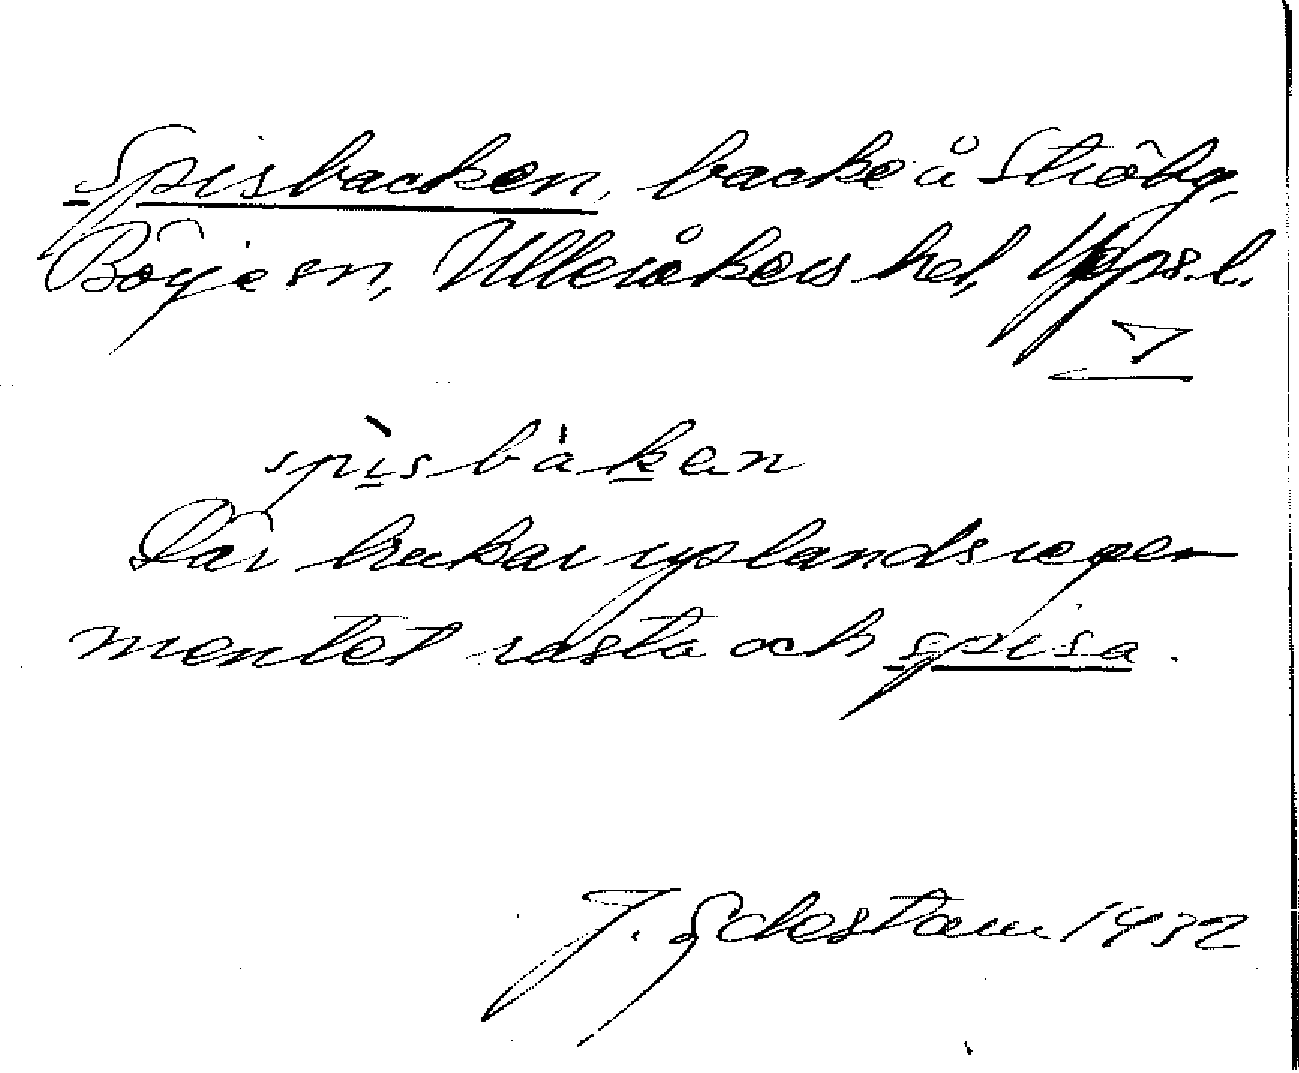 Spisbacken, backe å Ströby,
Börje sn, Ulleråkers hd, Upps.l.
7
spisbàken
Där brukar upplandsregem
mentet rasta och spisa.
J. Sdestam 1932